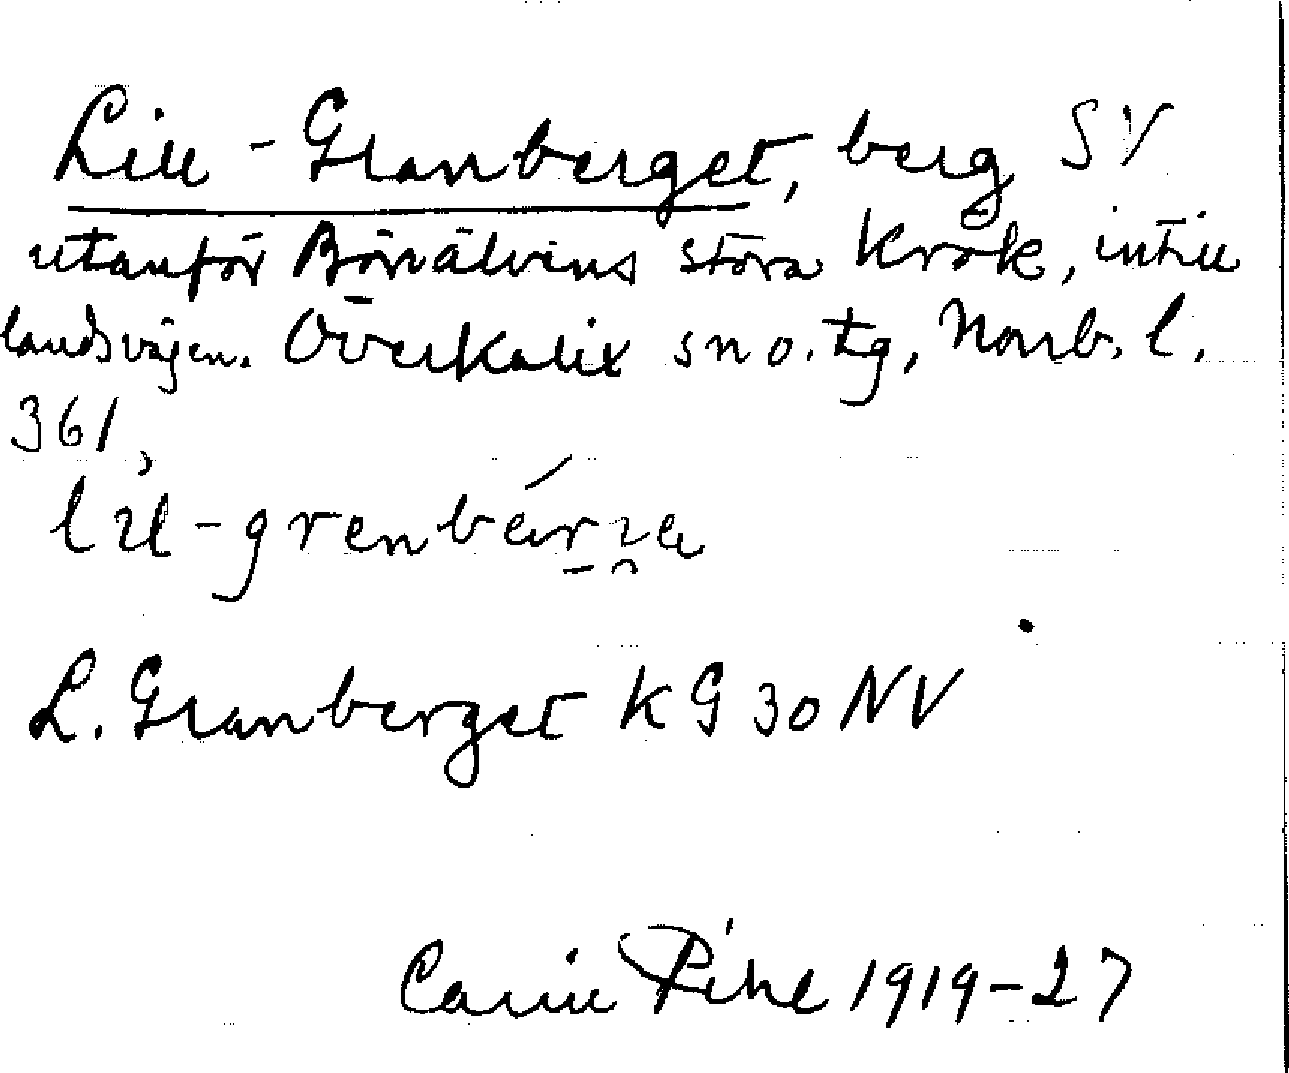 Lill-Granberget, berg SV
utanför Börvälvens stora krök, intill
landsvägen. Överkalix sn o. tg, Norrb. l.
361,
L. Granberget KG 30 NV
Carin Pihl 1919-27